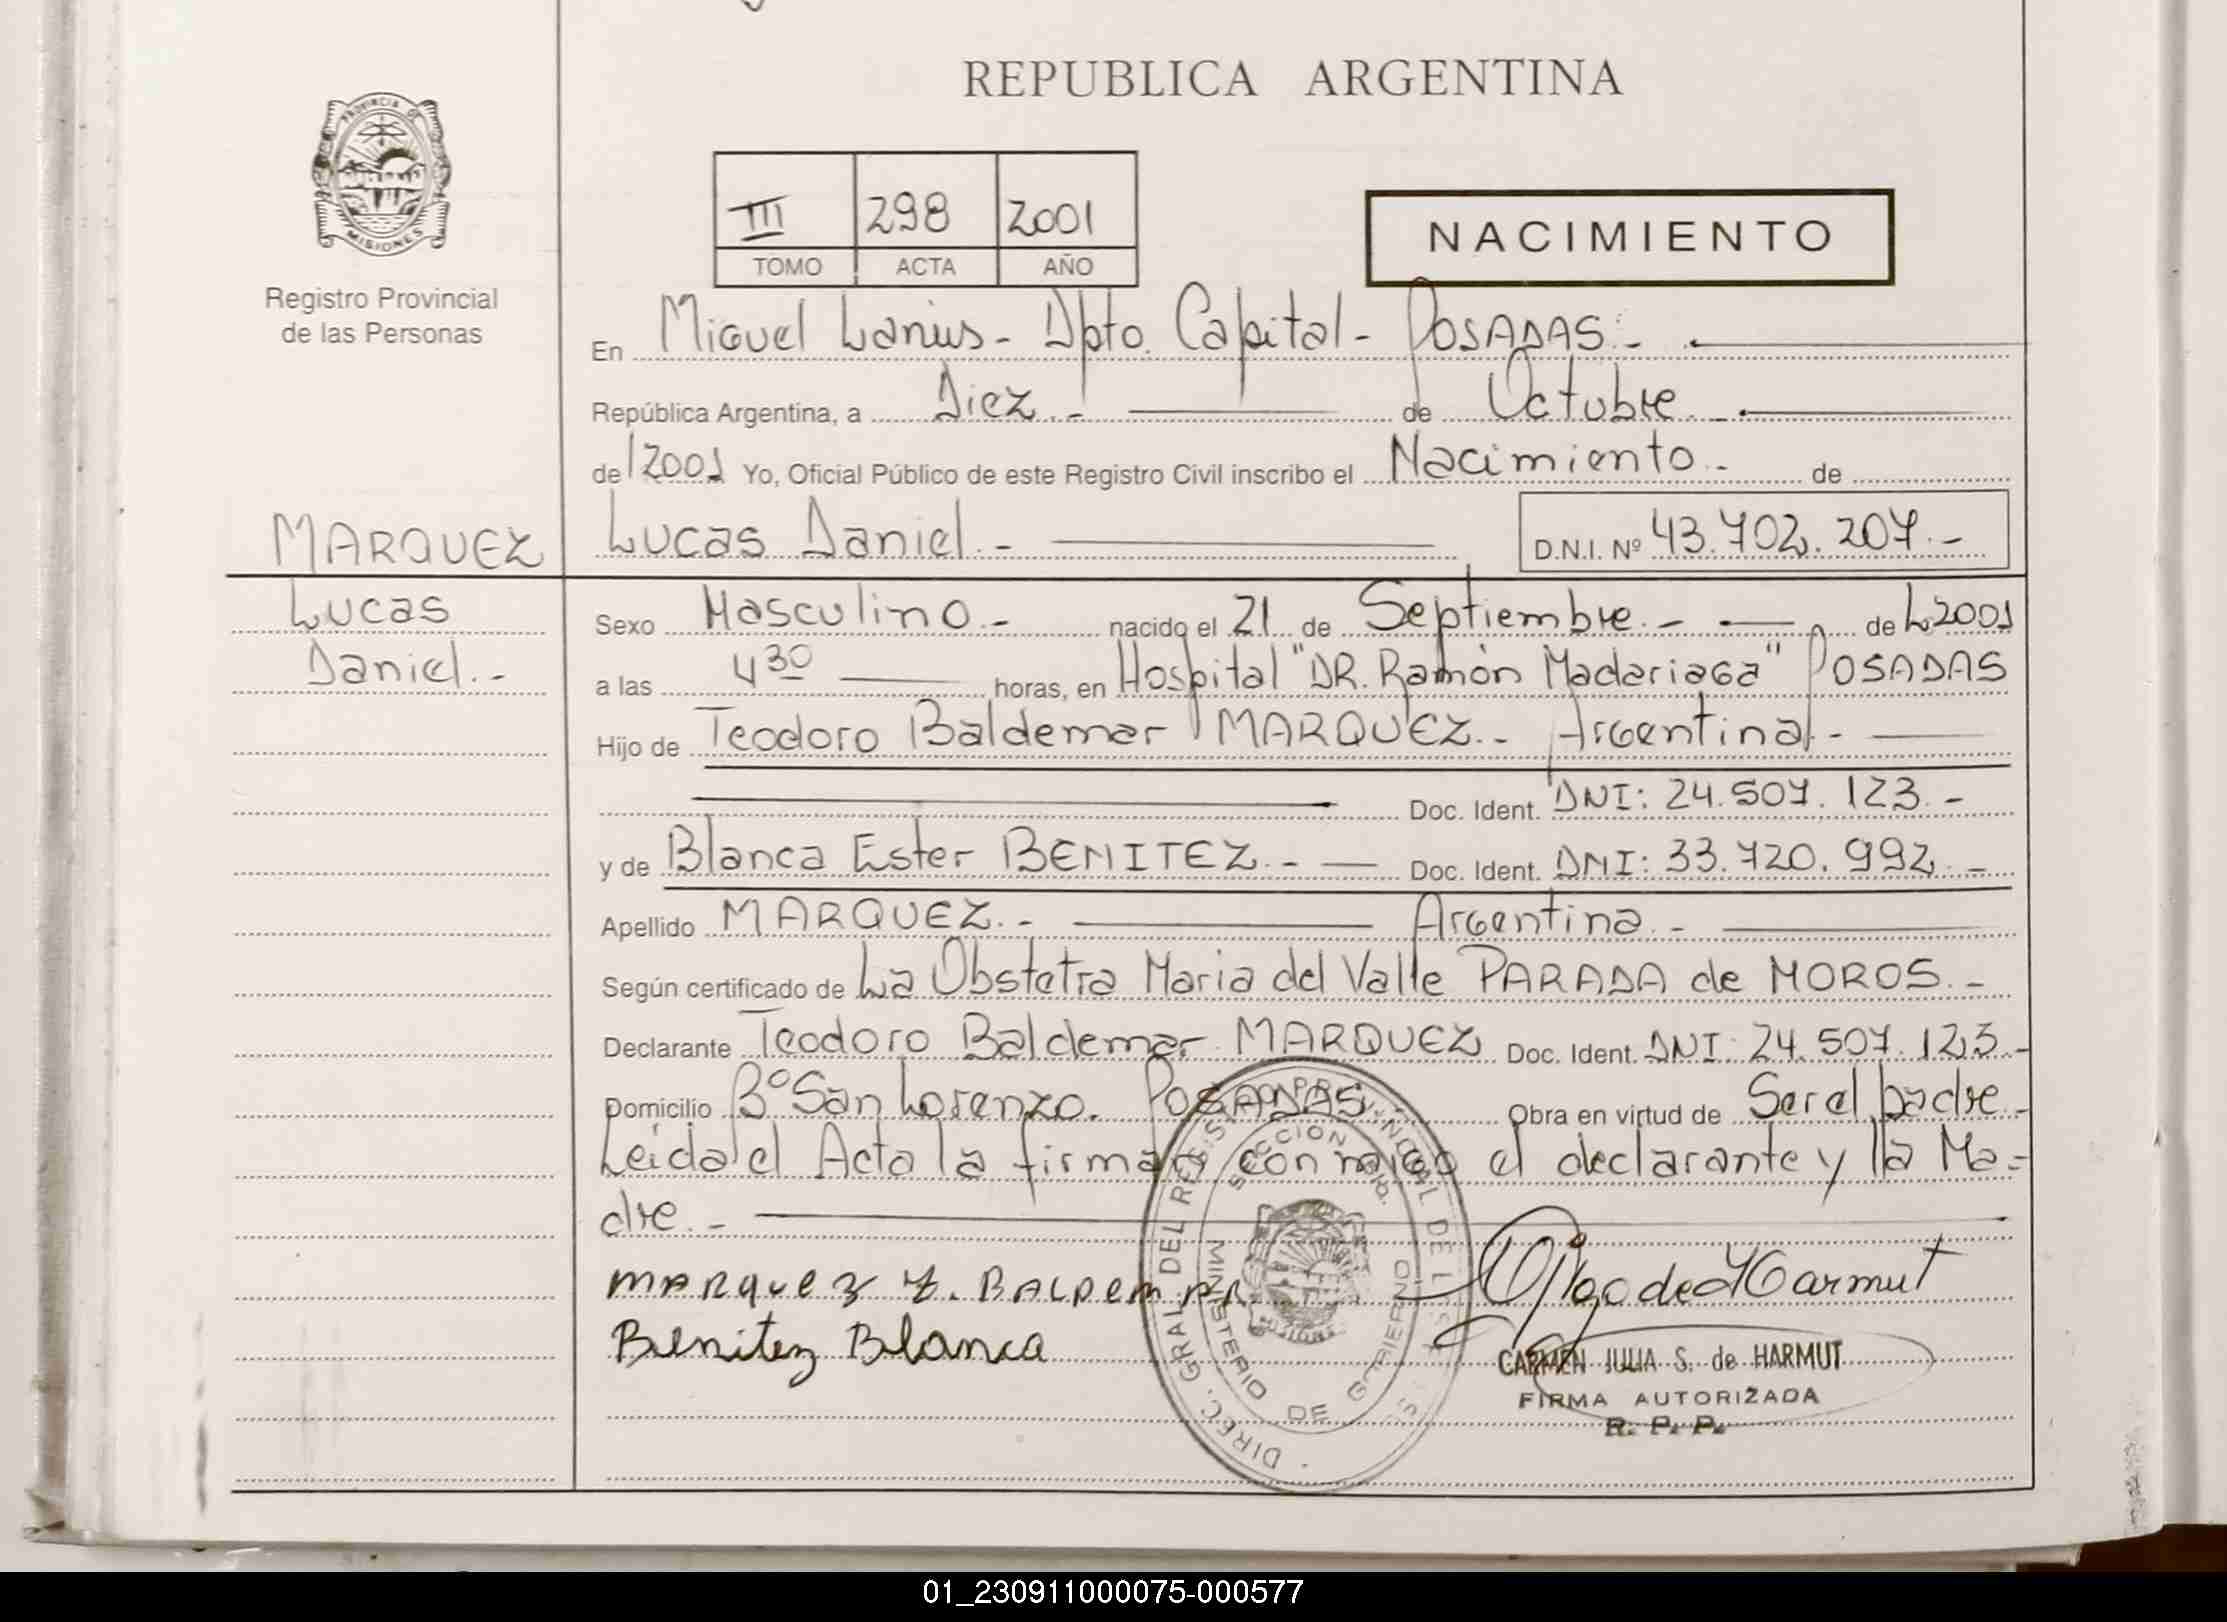 REPUBLICA ARGENTINA
PROVINCIA DE
MISIONES
Registro Provincial
de las Personas
III 298 2001
TOMO ACTA AÑO
NACIMIENTO
En Miguel Lanús- Dpto. Capital- POSADAS.-
República Argentina, a Diez.- de Octubre.-
de 2001 Yo, Oficial Público de este Registro Civil inscribo el Nacimiento.- de
MARQUEZ Lucas Daniel.- D.N.I. Nº 43.702.207.-
Lucas
Daniel.-
Sexo Masculino.- nacido el 21 de Septiembre.- de 2001
a las 4 30 horas, en Hospital "DR. Ramón Madariaga" POSADAS
Hijo de Teodoro Baldemar MARQUEZ.- Argentina.-
Doc. Ident. DNI: 24.507.123.-
y de Blanca Ester BENITEZ.- Doc. Ident. DNI: 33.720.992.-
Apellido MARQUEZ.- Argentina.-
Según certificado de La Obstetra Maria del Valle PARADA de MOROS.-
Declarante Teodoro Baldemar MARQUEZ Doc. Ident. DNI: 24.507.123.-
Domicilio Bº San Lorenzo. POSADAS.- Obra en virtud de Ser el padre.-
Leída el Acta la firman conmigo el declarante y la Ma-
dre.-
MARqueз T. BALDEMAR
Benitez Blanca
CARMEN JULIA S. de HARMUT
FIRMA AUTORIZADA
R. P. P.
DIREC. GRAL DEL REGIST. PROVINCIAL DE LAS
MINISTERIO DE GOBIERNO
01_230911000075-000577